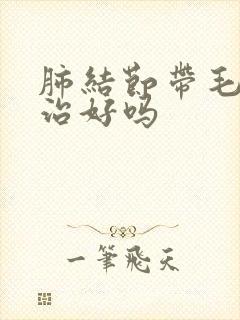 肺結節帶毛
治好吗
一筆飛天